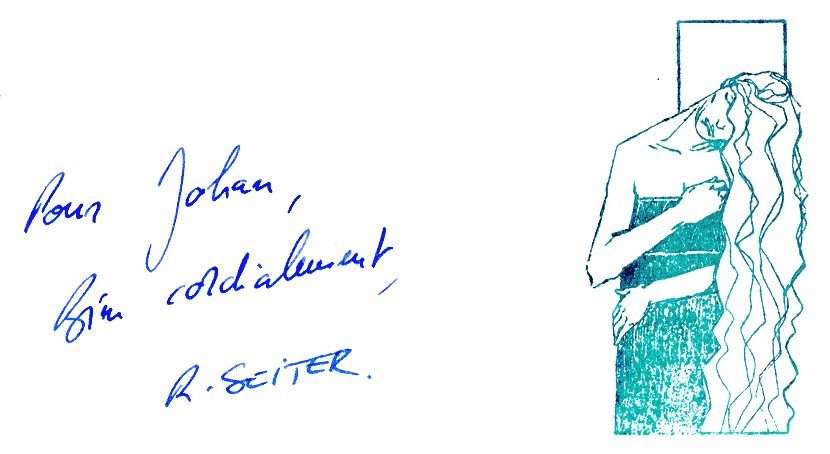 Pour Johan,
Bien cordialement,
R. SEITER.